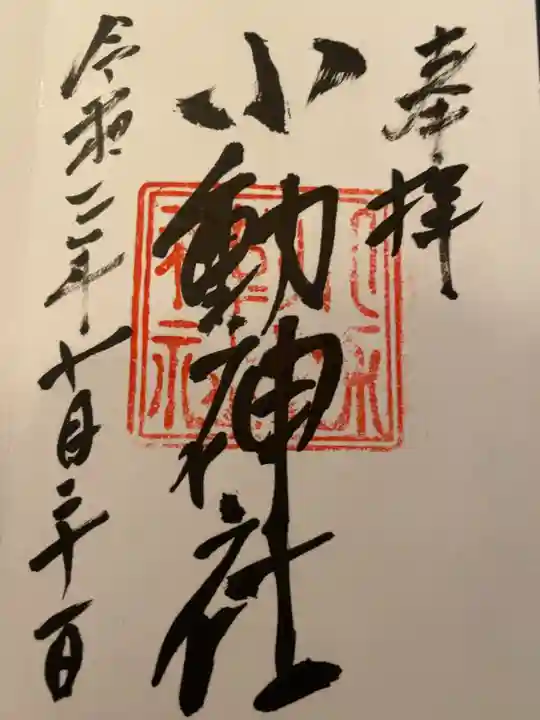 奉拝
小動神社
令和二年十月二十一日